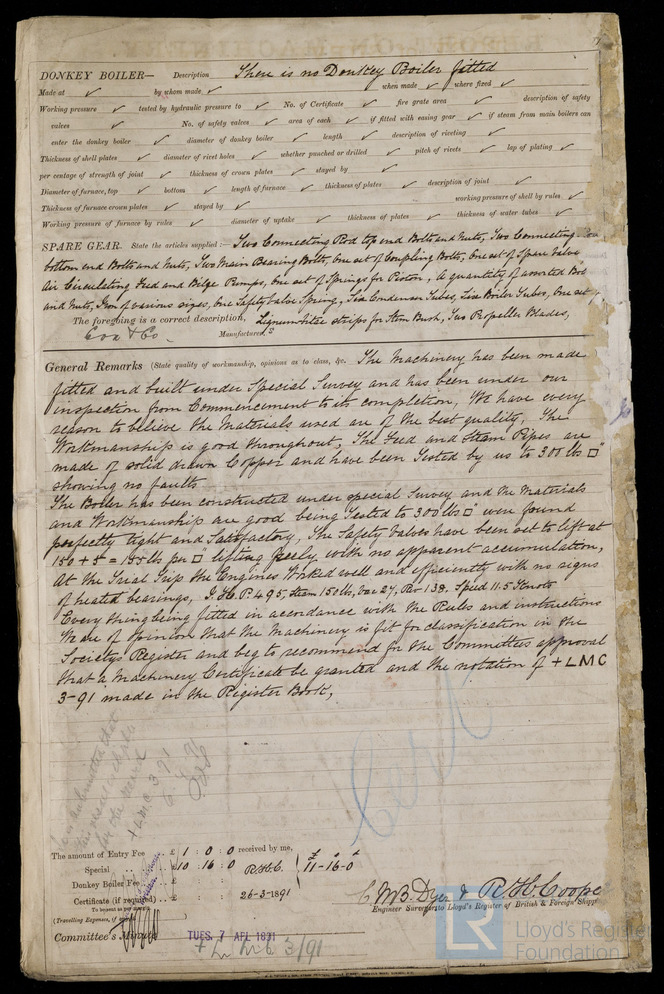 DONKEY BOILER— Description There is no Donkey Boiler fitted
Made at ✓ by whom made ✓ when made ✓ where fixed ✓
Working pressure ✓ tested by hydraulic pressure to ✓ No. of Certificate ✓ fire grate area ✓ description of safety
valves ✓ No. of safety valves ✓ area of each ✓ if fitted with easing gear ✓ if steam from main boilers can
enter the donkey boiler ✓ diameter of donkey boiler ✓ length ✓ description of riveting ✓
Thickness of shell plates ✓ diameter of rivet holes ✓ whether punched or drilled ✓ pitch of rivets ✓ lap of plating ✓
per centage of strength of joint ✓ thickness of crown plates ✓ stayed by ✓
Diameter of furnace, top ✓ bottom ✓ length of furnace ✓ thickness of plates ✓ description of joint ✓
Thickness of furnace crown plates ✓ stayed by ✓ working pressure of shell by rules ✓
Working pressure of furnace by rules ✓ diameter of uptake ✓ thickness of plates ✓ thickness of water tubes ✓
SPARE GEAR. State the articles supplied:— Two Connecting Rod top end Bolts and Nuts, Two Connecting
bottom end Bolts and Nuts, Two Main Bearing Bolts, One set of Coupling Bolts, One set of Spare Valve
Air Circulating Feed and Bilge Pumps, One set of Springs for Piston, A quantity of assorted Bolts
and Nuts, Iron of various sizes, One Safety Valve Spring, Six Condenser Tubes, Six Boiler Tubes, One set of
The foregoing is a correct description, Lignum Vitae strips for Stern Bush, Two Propeller Blades,
Cox & Co. Manufacturer.
General Remarks (State quality of workmanship, opinions as to class, &c. The Machinery has been made
fitted and built under Special Survey and has been under our
inspection from Commencement to its completion, We have every
reason to believe the Materials used are of the best quality, The
Workmanship is good throughout, The Feed and Steam Pipes are
made of solid drawn Copper and have been Tested by us to 300 lbs □"
showing no faults
The Boiler has been constructed under special Survey and the Materials
and Workmanship are good being Tested to 300 lbs □" were found
perfectly tight and Satisfactory, The Safety Valves have been set to lift at
150 + 5 = 155 lbs per □" lifting freely with no apparent accumulation,
At the Trial Trip the Engines Worked well and efficiently with no signs
of heated bearings, I.H.P. 495, Steam 150 lbs, Vac 27, Rev 138. Speed 11.5 Knots
Every thing being fitted in accordance with the Rules and instructions
We are of opinion that the Machinery is fit for classification in the
Societys Register and beg to recommend for the Committees approval
that a Machinery Certificate be granted and the notation of + LMC
3-91 made in the Register Book,
Cert
The amount of Entry Fee .. £ 1 : 0 : 0 received by me,
Special .. £ 10 : 16 : 0 R.H.C. £11-16-0
Donkey Boiler Fee .. £ : :
Certificate (if required) .. £ : : 26-3-1891
(Travelling Expenses, if any
C. M. B. Dyer & R. H. Cooper
Engineer Surveyors to Lloyd's Register of British & Foreign Shipp
Committee's Minute
TUES. 7 APL 1891
+ LMC 3/91
LR
Lloyd's Register
Foundation